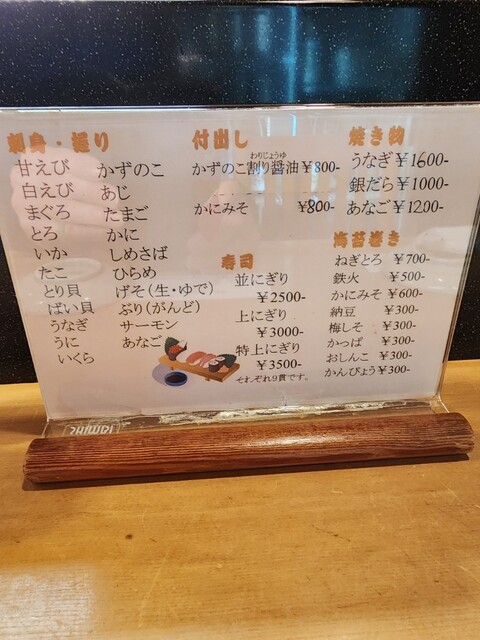 刺身・握り
甘えび かずのこ
白えび あじ
まぐろ たまご
とろ かに
いか しめさば
たこ ひらめ
とり貝 げそ(生・ゆで)
ばい貝 ぶり(がんど)
うなぎ サーモン
うに あなご
いくら
付出し
わりじょうゆ
かずのこ割り醤油 ¥800-
かにみそ ¥800-
寿司
並にぎり
¥2500-
上にぎり
¥3000-
特上にぎり
¥3500-
それぞれ9貫です。
焼き物
うなぎ ¥1600-
銀だら ¥1000-
あなご ¥1200-
海苔巻き
ねぎとろ ¥700-
鉄火 ¥500-
かにみそ ¥600-
納豆 ¥300-
梅しそ ¥300-
かっぱ ¥300-
おしんこ ¥300-
かんぴょう ¥300-